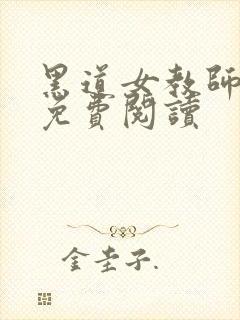 黑道女教師
免費閱讀
金圭子.